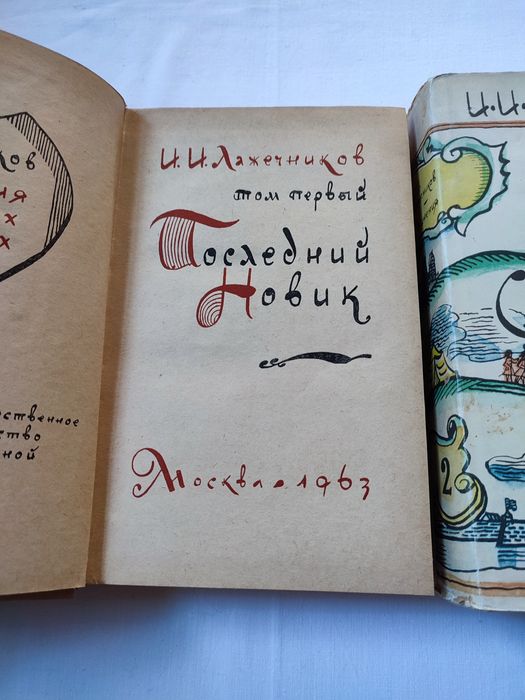 ков
ия
х
х
ственное
ство
ной
И. И. Лажечников
том первый
Последний
Новик
Москва • 1963
И • И •
2